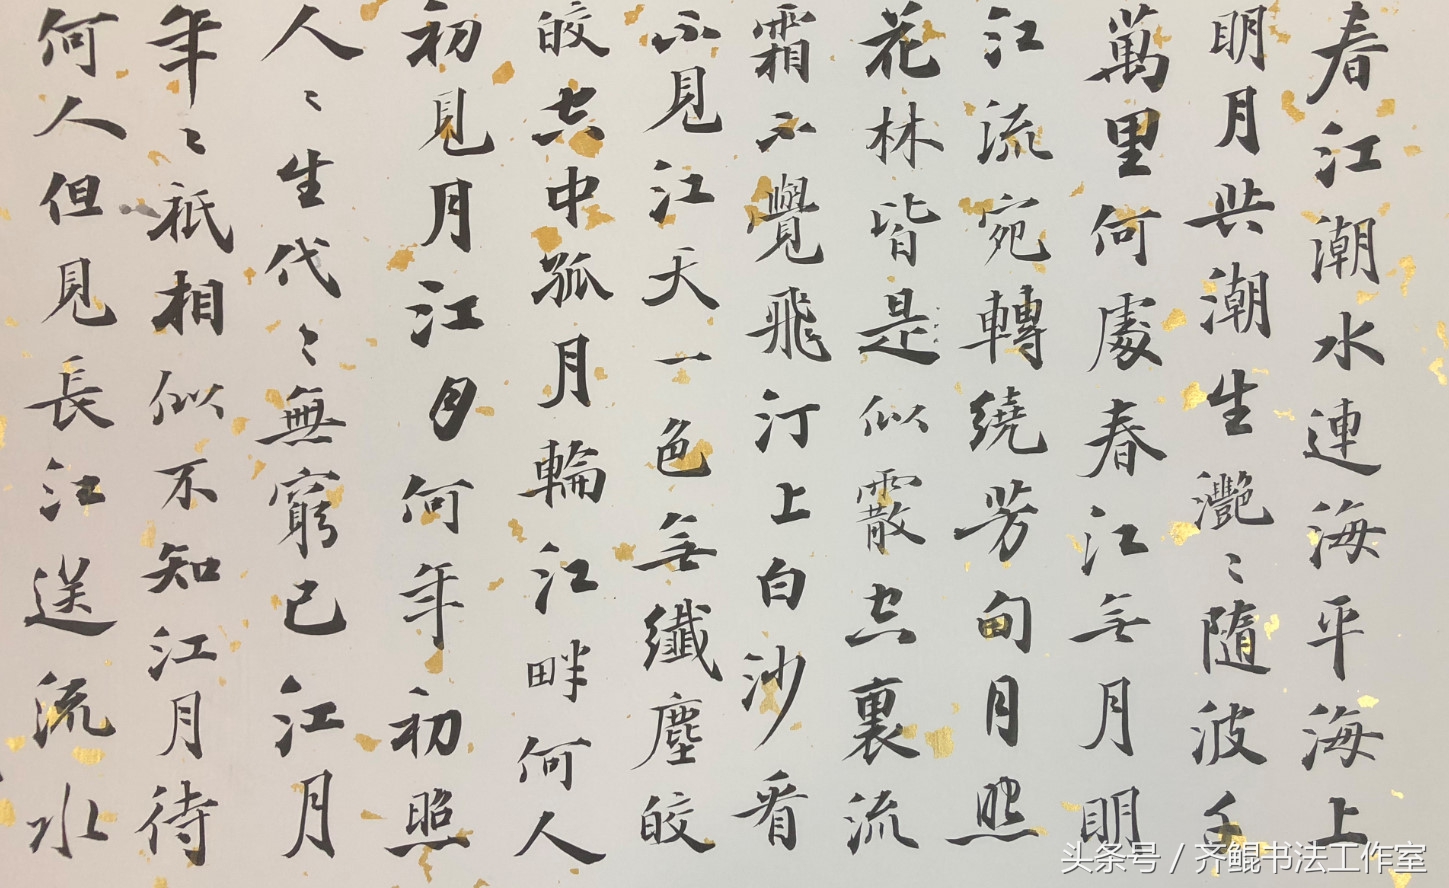 春江潮水連海平海上
明月共潮生灩〻隨波千
萬里何處春江无月明
江流宛轉繞芳甸月照
花林皆是似霰空裏流
霜不覺飛汀上白沙看
不見江天一色无纖塵皎
皎空中孤月輪江畔何人
初見月江月何年初照
人〻生代〻無窮已江月
年〻祇相似不知江月待
何人但見長江送流水
头条号 / 齐鲲书法工作室